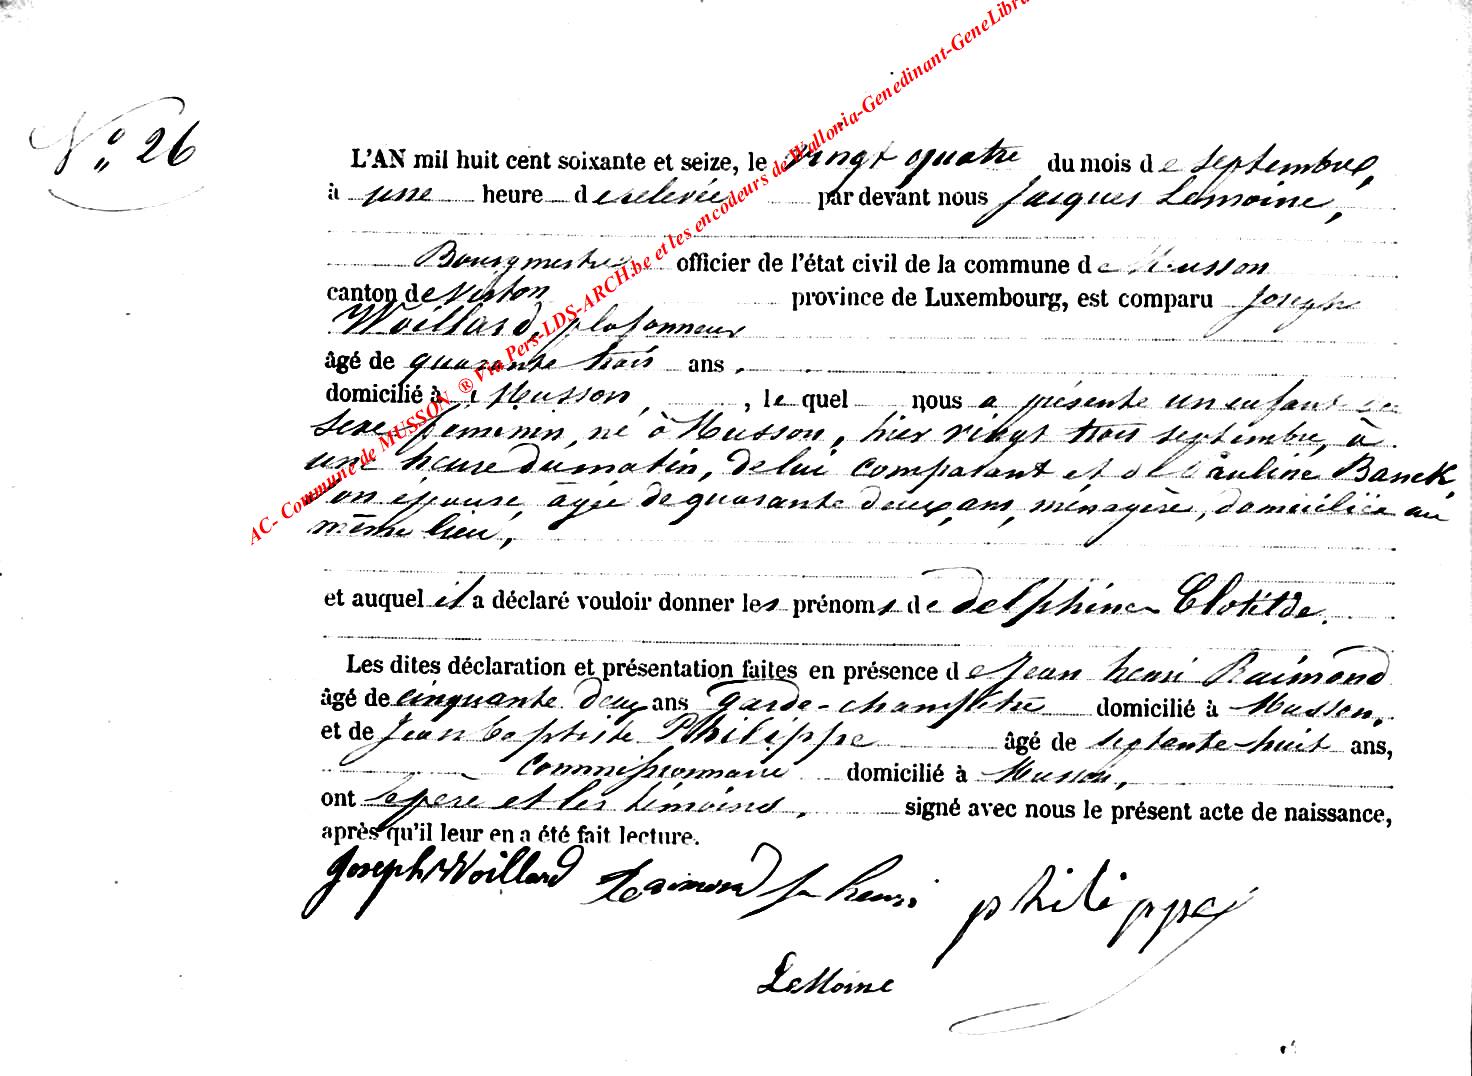 N° 26
L'AN mil huit cent soixante et seize, le vingt quatre du mois de septembre,
à une heure de relevée par devant nous Jacques Lemoine,
Bourgmestre officier de l'état civil de la commune de Musson
canton de Virton province de Luxembourg, est comparu Joseph
Woillard, plafonneur
âgé de quarante trois ans,
domicilié à Musson, , le quel nous a présenté un enfant de
sexe féminin, né à Musson, hier vingt trois septembre, à
une heure du matin, de lui comparant et de Pauline Banck,
son épouse, âgée de quarante deux ans, ménagère, domiciliée au
même lieu,
et auquel il a déclaré vouloir donner les prénoms de Delphine Clotilde.
Les dites déclaration et présentation faites en présence de Jean henri Raimond
âgé de cinquante deux ans garde-champêtre domicilié à Musson,
et de Jean baptiste Philippe âgé de septante-huit ans,
Commissionnaire domicilié à Musson,
ont le père et les témoins, signé avec nous le présent acte de naissance,
après qu'il leur en a été fait lecture.
Joseph Woillard Raimond Jn henri philippe
LeMoine
AC- Commune de MUSSON ® Via Pers-LDS-ARCH.be et les encodeurs de Wallonia-Genedinant-GeneLibra